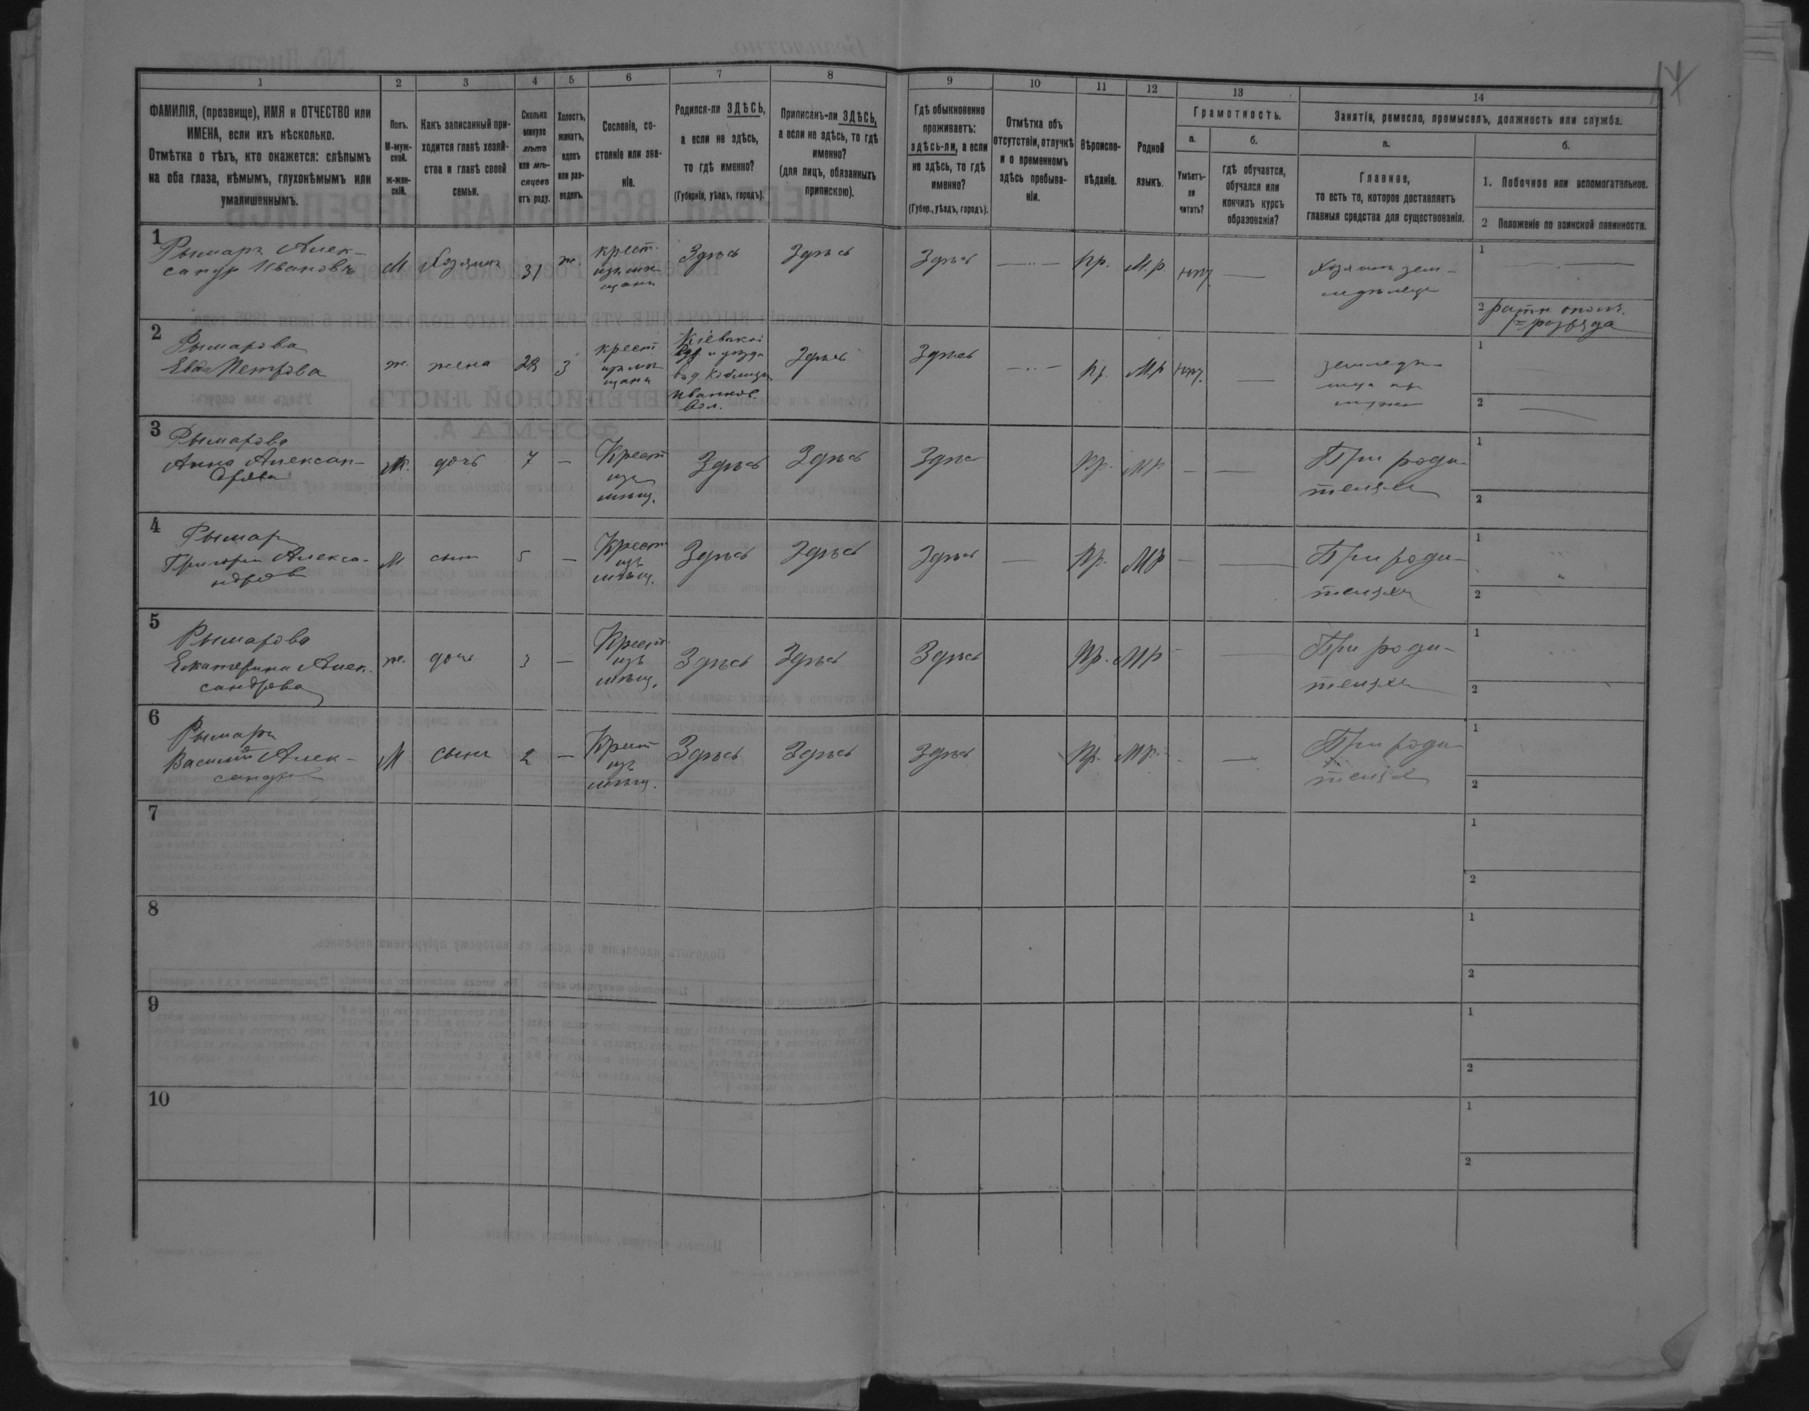 1 2 3 4 5 6 7 8 9 10 11 12 13 14
ФАМИЛІЯ, (прозвище), ИМЯ и ОТЧЕСТВО или
ИМЕНА, если ихъ нѣсколько.
Отмѣтка о тѣхъ, кто окажется: слѣпымъ
на оба глаза, нѣмымъ, глухонѣмымъ или
умалишеннымъ.
Полъ.
М-муж-
ской.
Ж-жен-
скій.
Какъ записанный при-
ходится главѣ хозяй-
ства и главѣ своей
семьи.
Сколько
минуло
лѣтъ
или мѣ-
сяцевъ
отъ роду.
Холостъ,
женатъ,
вдовъ
или раз-
веденъ.
Сословіе, со-
стояніе или зва-
ніе.
Родился-ли ЗДѢСЬ,
а если не здѣсь,
то гдѣ именно?
(Губернія, уѣздъ, городъ).
Приписанъ-ли ЗДѢСЬ,
а если не здѣсь, то гдѣ
именно?
(для лицъ, обязанныхъ
припискою).
Гдѣ обыкновенно
проживаетъ:
здѣсь-ли, а если
не здѣсь, то гдѣ
именно?
(Губер., уѣздъ, городъ).
Отмѣтка объ
отсутствіи, отлучкѣ
и о временномъ
здѣсь пребыва-
ніи.
Вѣроиспо-
вѣданіе.
Родной
языкъ.
Грамотность.
а.
Умѣетъ-
ли
читать?
б.
гдѣ обучается,
обучался или
кончилъ курсъ
образованія?
Занятіе, ремесло, промыселъ, должность или служба.
а.
Главное,
то есть то, которое доставляетъ
главныя средства для существованія.
б.
1. Побочное или вспомогательное.
2 Положеніе по воинской повинности.
1
Рымарь Алек-
сандр Ивановъ
М Хозяинъ 31 ж.
крест.
изъ мѣ-
щанъ
Здѣсь Здѣсь Здѣсь — Пр. М.р нѣт —
Хозяинъ зем-
ледѣлецъ
1
2 ратн. ополч.
1го разряда
2
Рымарова
Ева Петрова
ж. жена 28 З
крест
изъ мѣ
щанъ
Кіевской
губ и уѣзда
Иванков
вол.
Здѣсь Здѣсь — Пр. МР нѣт. —
земледѣ-
лица при
мужѣ
1
2
3
Рымарова
Анна Алексан-
дрова
ж. дочь 7 —
Крест
изъ
мѣщ.
Здѣсь Здѣсь Здѣсь Пр. МР — —
При роди-
теляхъ
1
2
4
Рымарь
Григорій Алекса-
ндров
М сынъ 5 —
Крест
изъ
мѣщ.
Здѣсь Здѣсь Здѣсь — Пр. МР — —
При роди-
теляхъ
1
2
5
Рымарова
Екатерина Алек-
сандрова
ж. дочь 3 —
Крест
изъ
мѣщ.
Здѣсь Здѣсь Здѣсь Пр. МР - —
При роди-
теляхъ
1
2
6
Рымарь
Василій Алек-
сандр
М сынъ 2 —
Крест
изъ
мѣщ.
Здѣсь Здѣсь Здѣсь Пр. МР. - —
При роди-
теляхъ
1
2
7
1
2
8
1
2
9
1
2
10
1
2